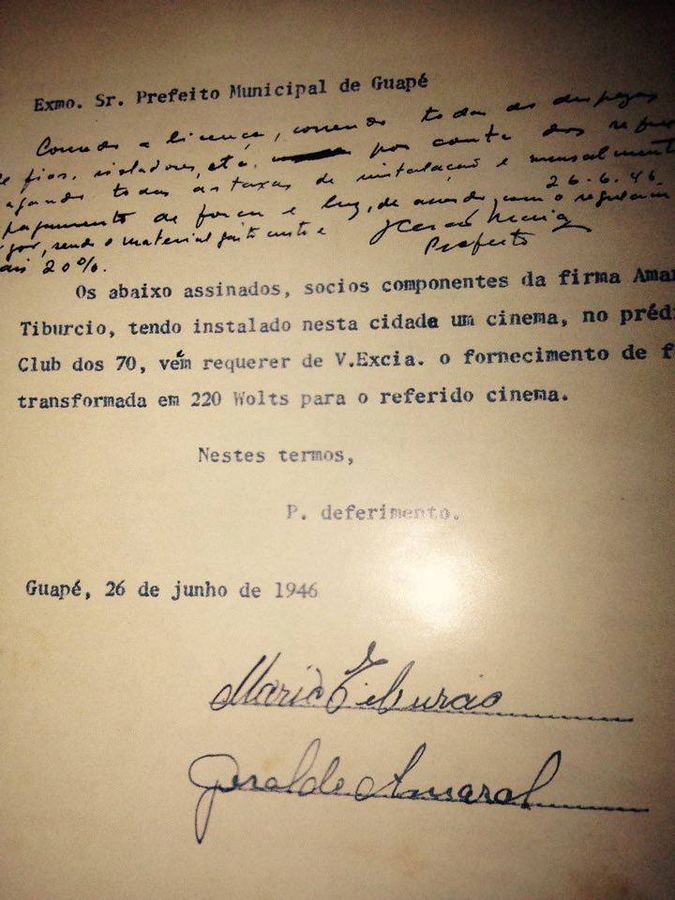 Exmo. Sr. Prefeito Municipal de Guapé
Concedo a licença, correndo todas as despezas
de fios, isoladores, etc. por conta dos
pagando todas as taxas de instalação e mensalmente
pagamento de força e luz, de acordo com o regulam
26-6-46
sendo o material
Prefeito
mais 20%.
Os abaixo assinados, socios componentes da firma Amar
Tiburcio, tendo instalado nesta cidade um cinema, no prédi
Club dos 70, vém requerer de V.Excia. o fornecimento de f
transformada em 220 Wolts para o referido cinema.
Nestes termos,
P. deferimento.
Guapé, 26 de junho de 1946
Mario Tiburcio
Geraldo Amaral